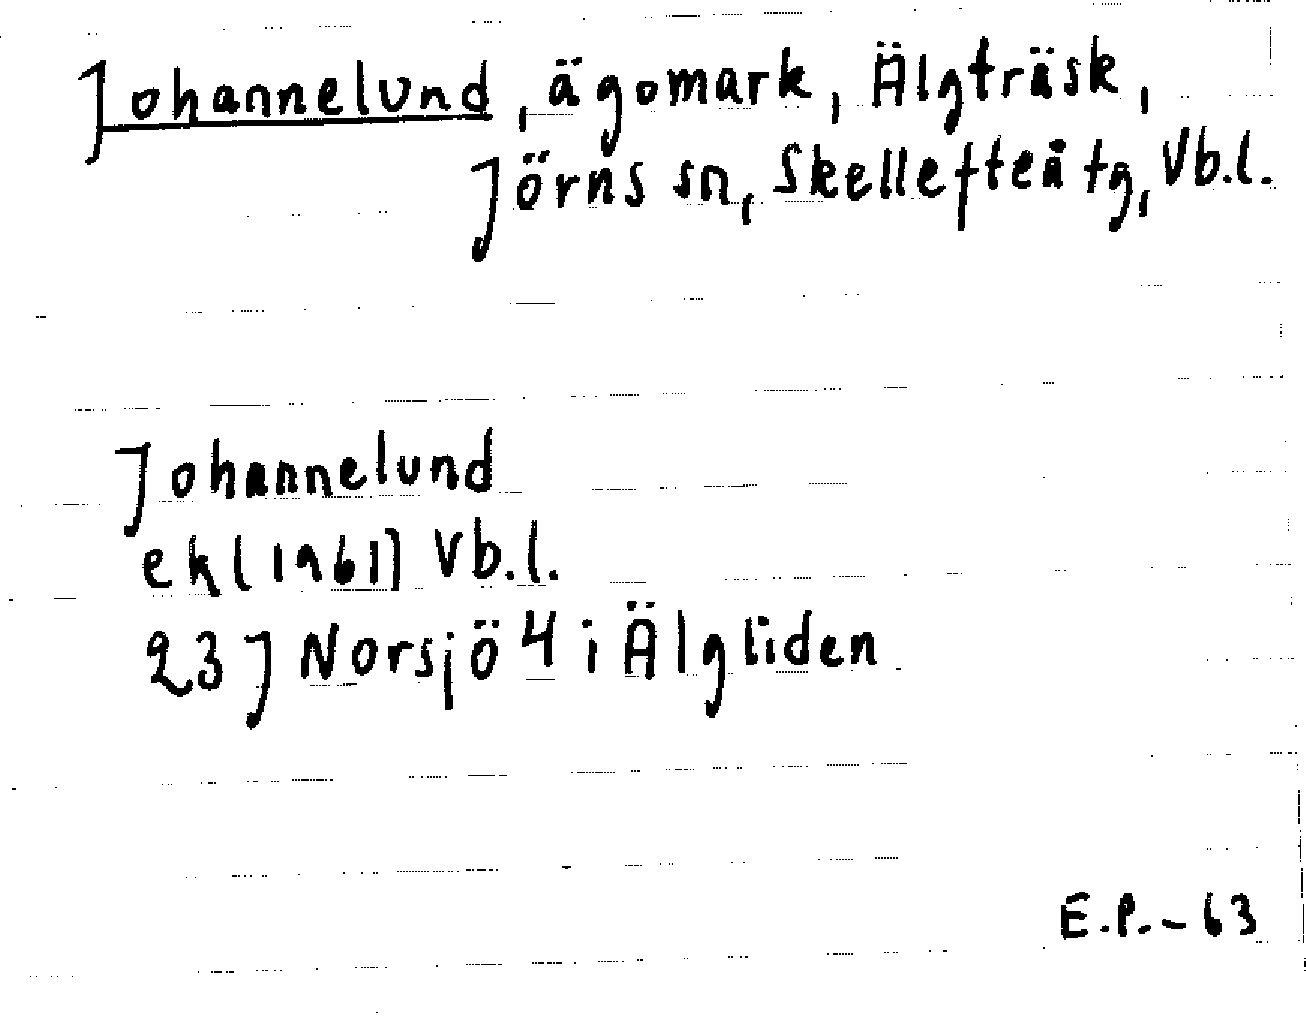 Johannelund, ägomark, Älgträsk,
Jörns sn, Skellefteå tg, Vb.l.
Johannelund
ekl(1961) Vb.l.
23J Norsjö 4 i Älgliden
E.P.-63